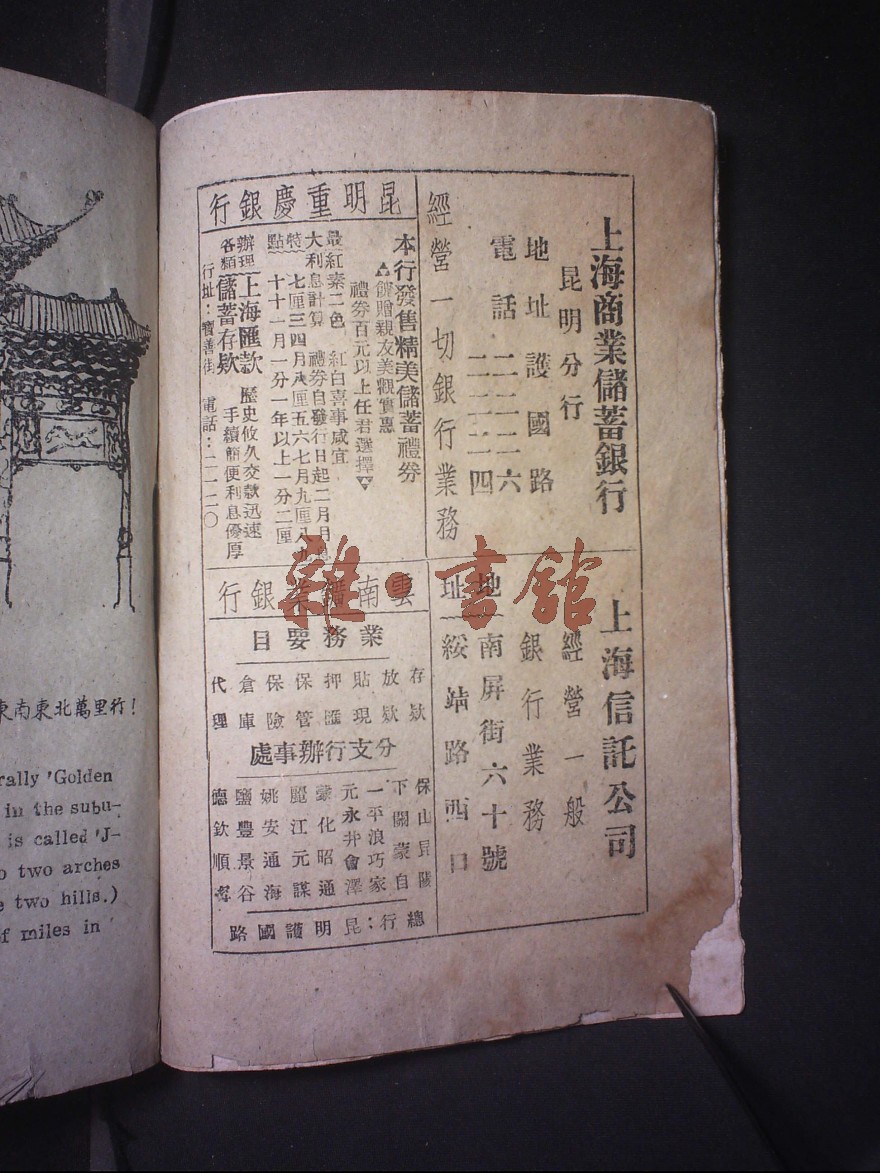 上海商業儲蓄銀行
昆明分行
地址護國路
電話 二二二六
二二二四
經營一切銀行業務
上海信託公司
經營一般
銀行業務
地址
南屏街六十號
綏靖路西口
昆明重慶銀行
本行發售精美儲蓄禮券
▲餽贈親友美觀實惠
禮券百元以上任君選擇▼
最紅素二色 紅白喜事咸宜
大利息計算 禮券自發行日起二月月息
特 七厘三四月八厘五六七月九厘八九
點 十十一月一分一年以上一分二厘
辦理上海匯款 歷史攸久交款迅速
各類儲蓄存欵 手續簡便利息優厚
行址：寶善街 電話：二一二〇
雲南鑛業銀行
業務要目
存欵
放欵
貼現
押匯
保管
保險
倉庫
代理
分支行辦事處
保山昆陽
下關蒙自
一平浪巧家
元永井會澤
蒙化昭通
麗江元謀
姚安通海
鹽豐景谷
德欽順寧
總行：昆明護國路
東南東北萬里行！
rally 'Golden
in the subu-
is called 'J-
o two arches
e two hills.)
of miles in
雜·書館